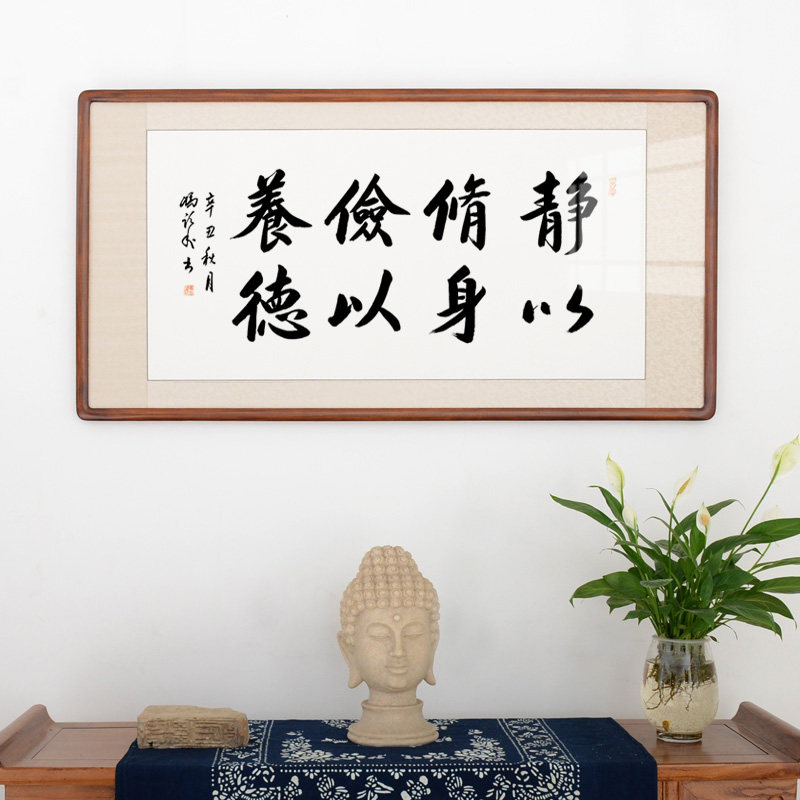 靜以
脩身
儉以
養德
辛丑秋月